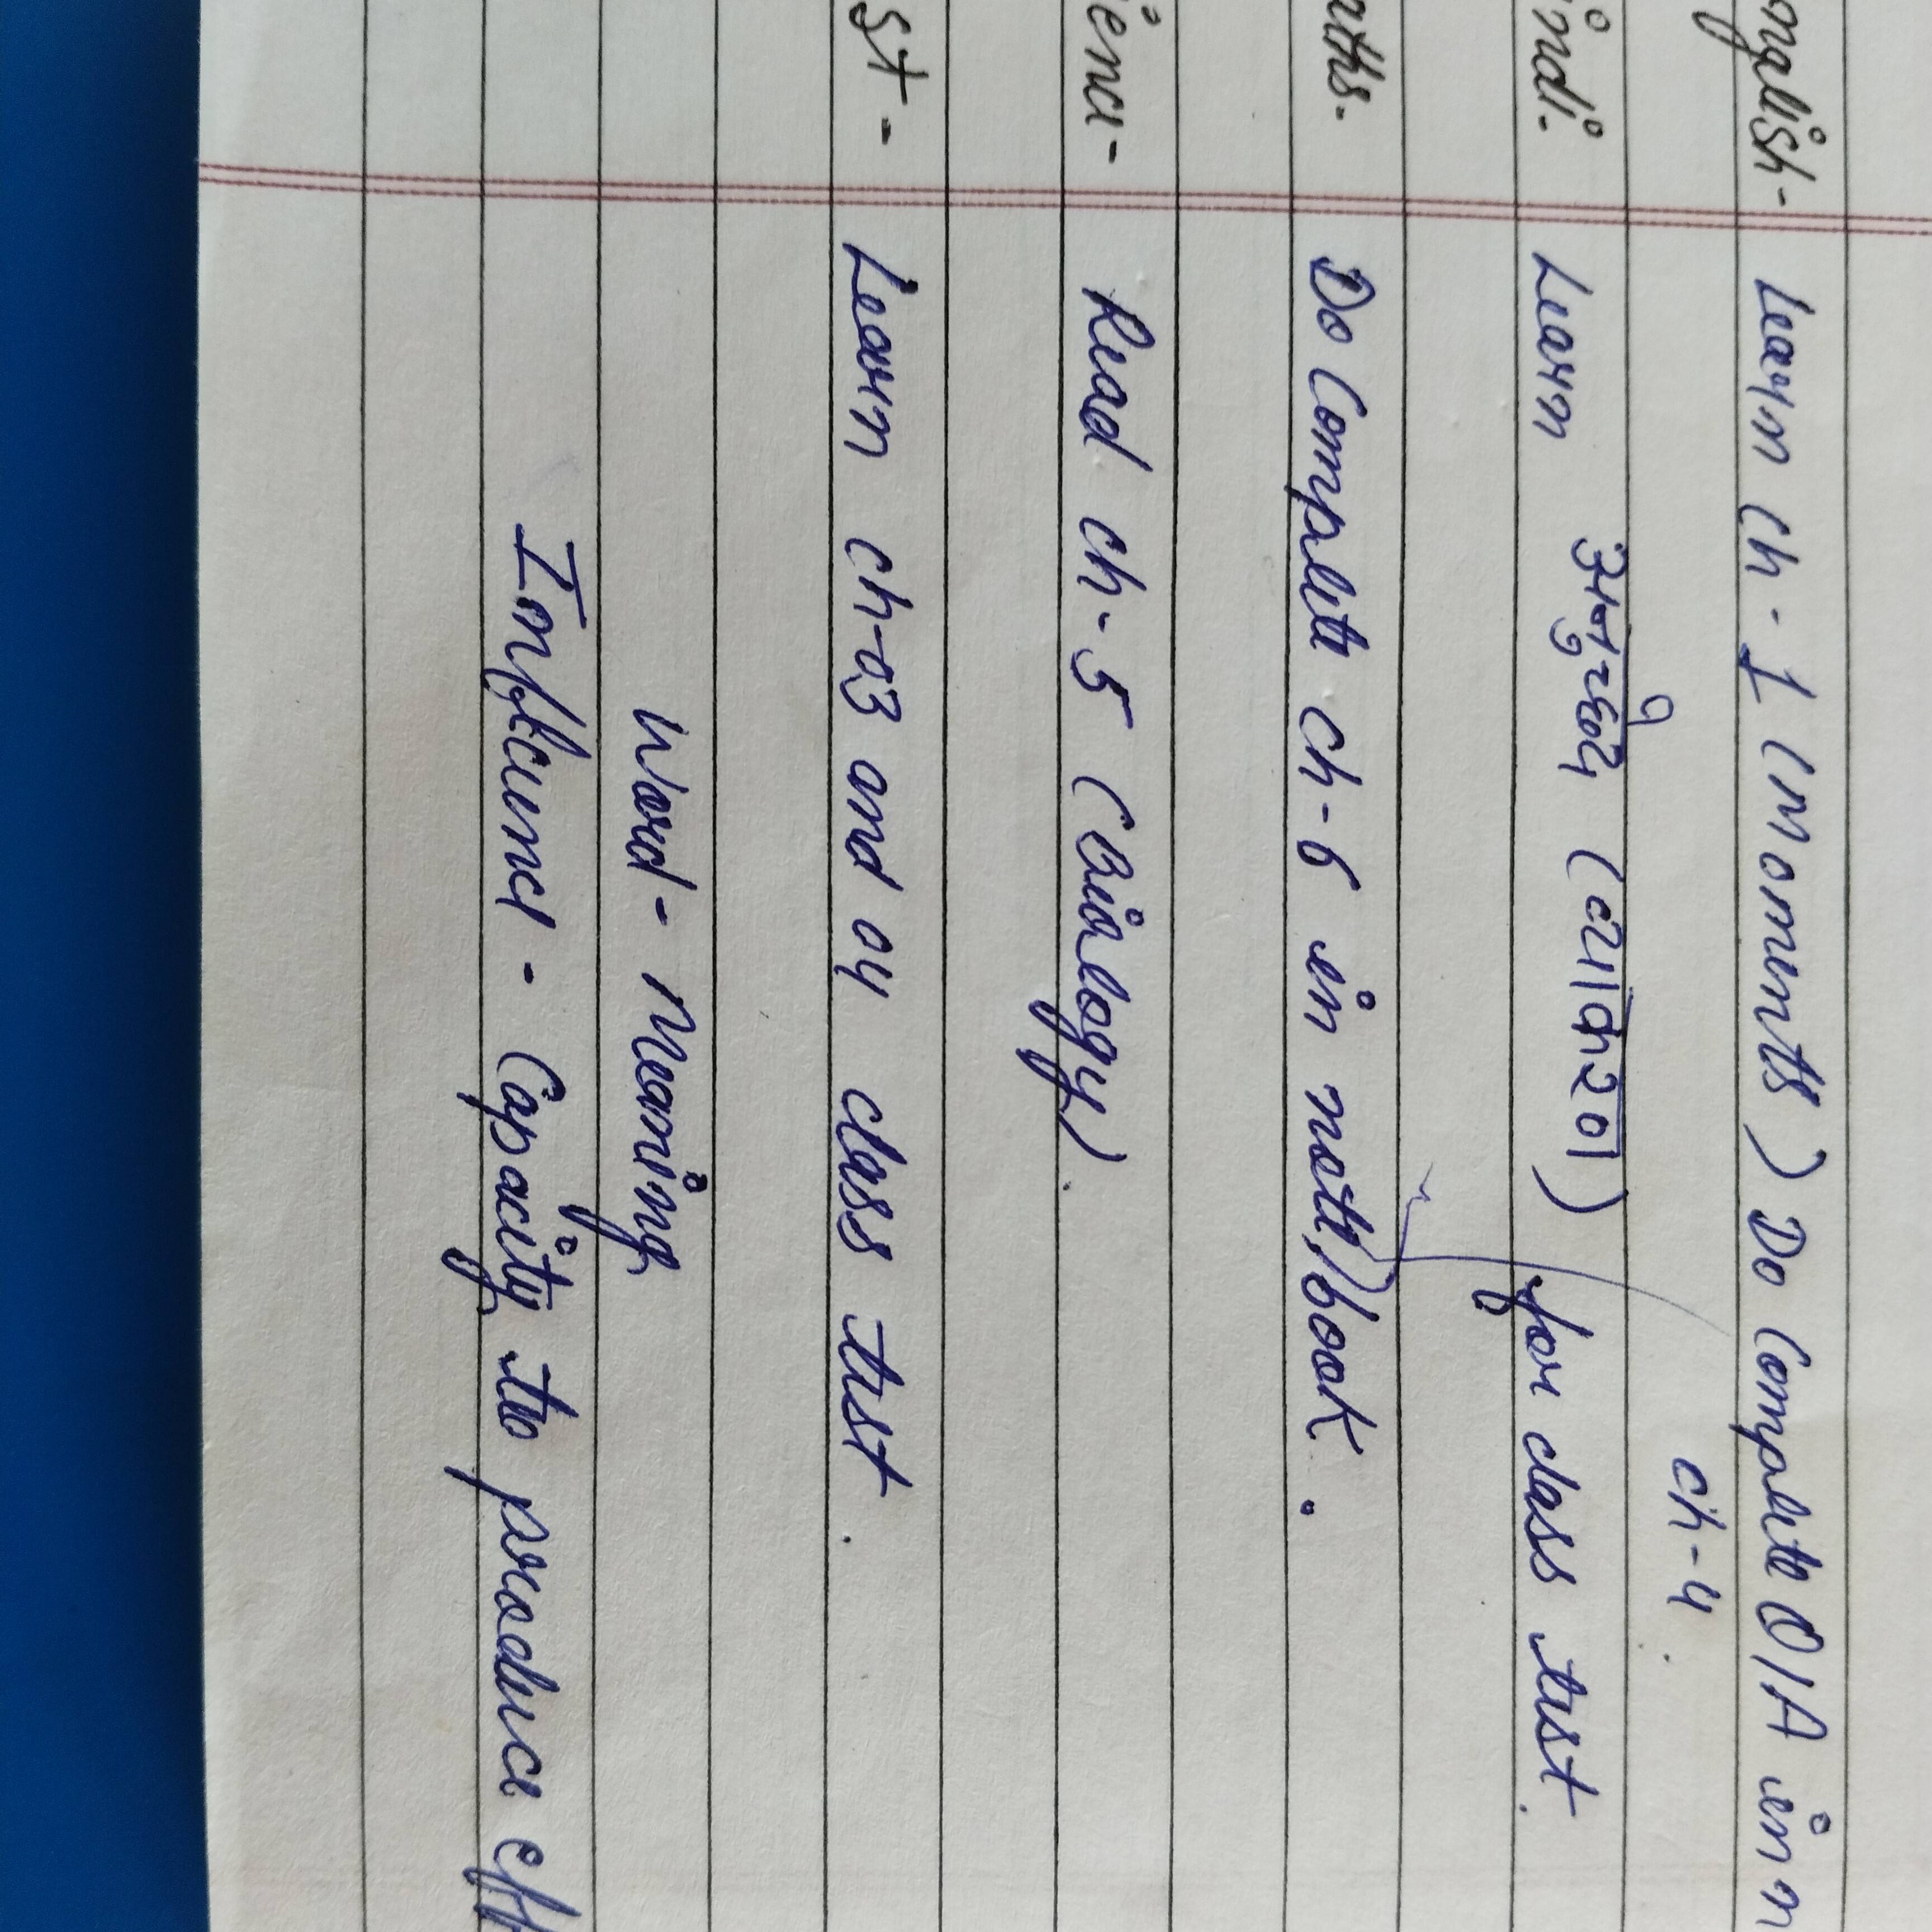 nglish- Learn ch-1 (Moments) Do Complete Q/A in n
ch-4.
indi- Learn अनुच्छेद (व्याकरण) for class test.
aths- Do Complete ch-6 in note/book.
ience- Read ch-5 (Biology).
sst- Learn ch-03 and 04 class test.
Word-Meaning
Influence - Capacity to produce eff